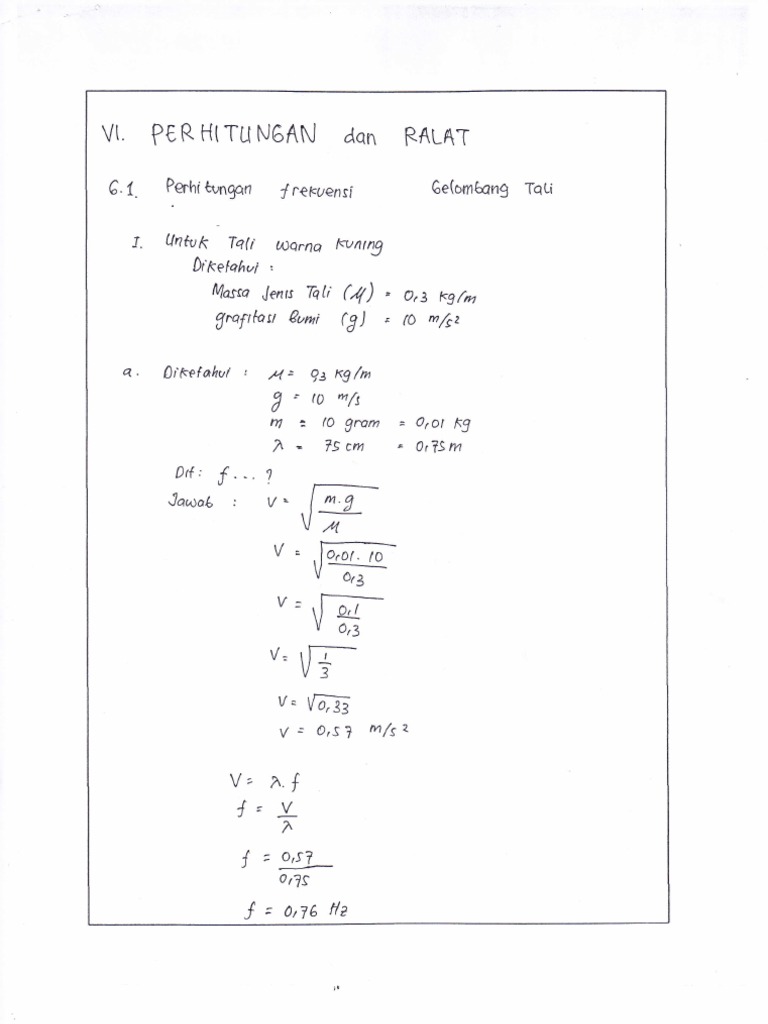 VI. PERHITUNGAN dan RALAT
6.1. Perhitungan frekuensi Gelombang Tali
I. Untuk Tali warna kuning
Diketahui :
Massa Jenis Tali (μ) = 0,3 kg/m
grafitasi bumi (g) = 10 m/s²
a. Diketahui : μ = 0,3 kg/m
g = 10 m/s
m = 10 gram = 0,01 kg
λ = 75 cm = 0,75 m
Dit : f ... ?
Jawab : V = √(m.g / μ)
V = √(0,01 . 10 / 0,3)
V = √(0,1 / 0,3)
V = √(1 / 3)
V = √0,33
V = 0,57 m/s²
V = λ. f
f = V / λ
f = 0,57 / 0,75
f = 0,76 Hz